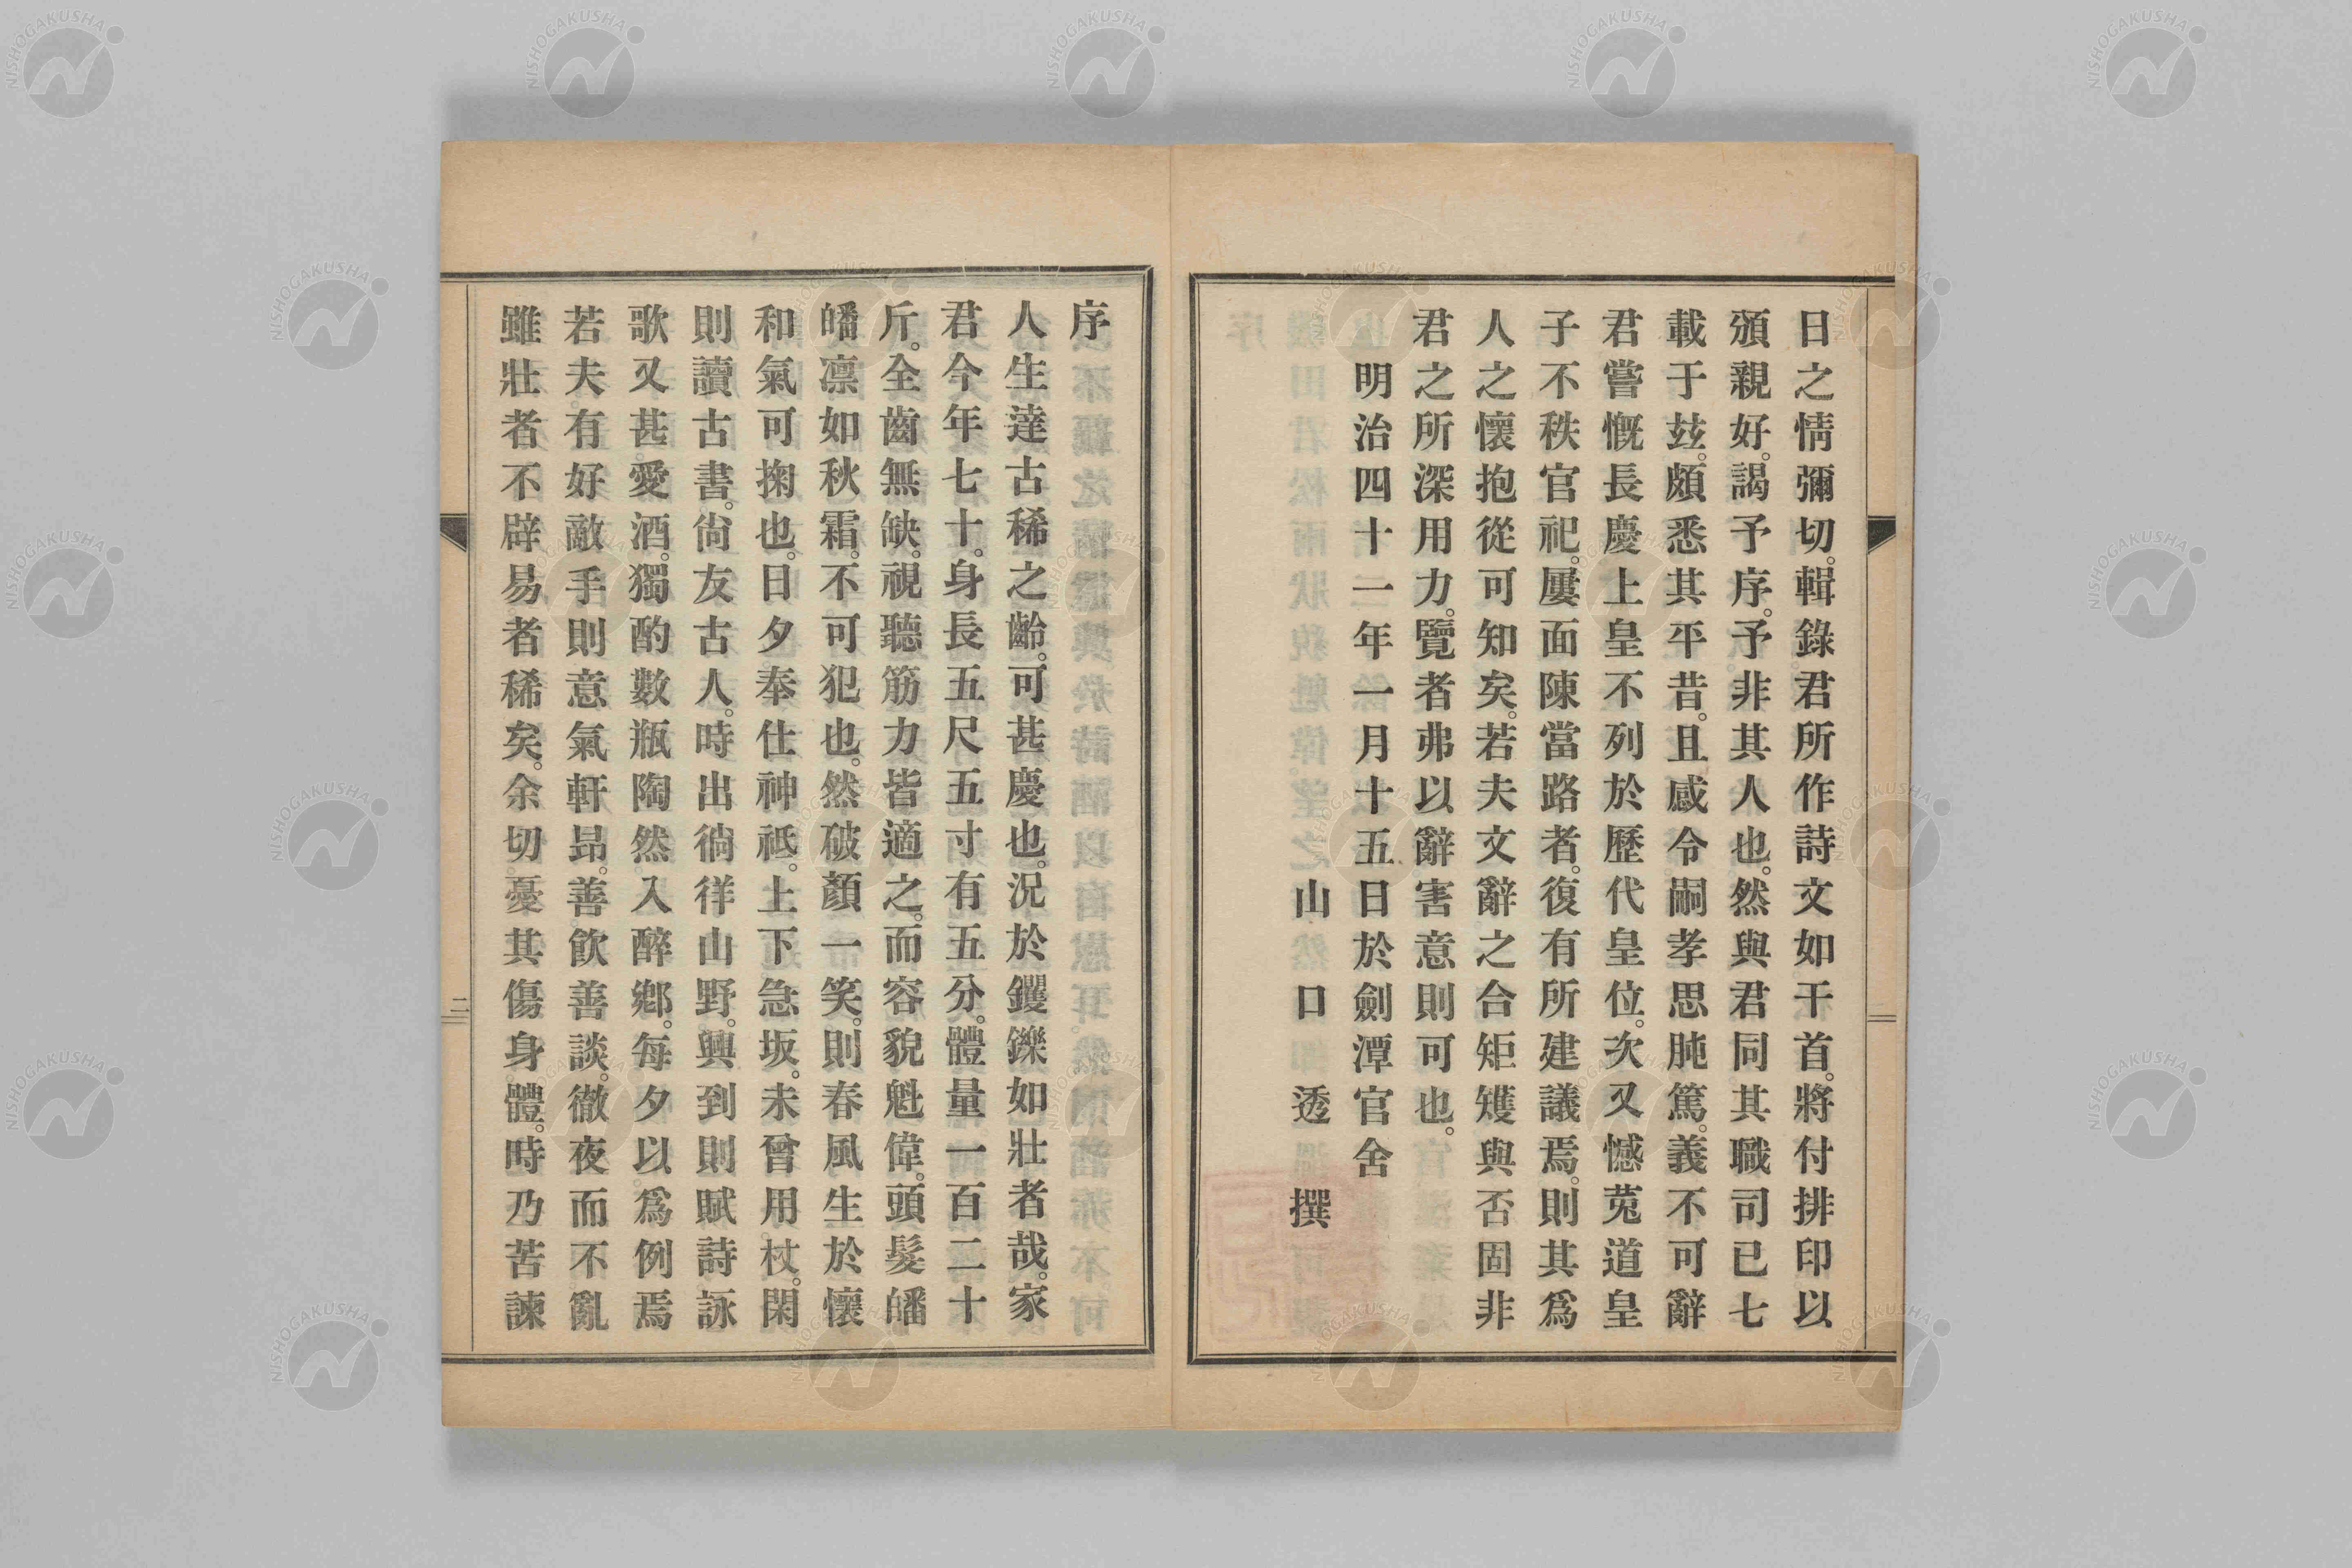 日之情彌切。輯錄君所作詩文如干首。將付排印以
頒親好。謁予序。予非其人也。然與君同其職司已七
載于玆。頗悉其平昔。且感令嗣孝思肫篤。義不可辭
君嘗慨長慶上皇不列於歷代皇位。次又憾菟道皇
子不秩官祀。屢面陳當路者。復有所建議焉。則其爲
人之懷抱從可知矣。若夫文辭之合矩矱與否固非
君之所深用力。覽者弗以辭害意則可也。
明治四十一年一月十五日於劍潭官舍
山口透撰
序
人生達古稀之齡。可甚慶也。況於钁鑠如壯者哉。家
君今年七十。身長五尺五寸有五分。體量一百二十
斤。全齒無缺。視聽筋力皆適之。而容貌魁偉。頭髮皤
皤凛如秋霜。不可犯也。然破顏一笑。則春風生於懷
和氣可掬也。日夕奉仕神祇。上下急坂。未曾用杖。閑
則讀古書。尙友古人。時出徜徉山野。興到則賦詩詠
歌又甚愛酒。獨酌數瓶陶然入醉鄕。每夕以爲例焉
若夫有好敵手則意氣軒昂。善飮善談。徹夜而不亂
雖壯者不辟易者稀矣。余切憂其傷身體。時乃苦諫
二
NISHOGAKUSHA